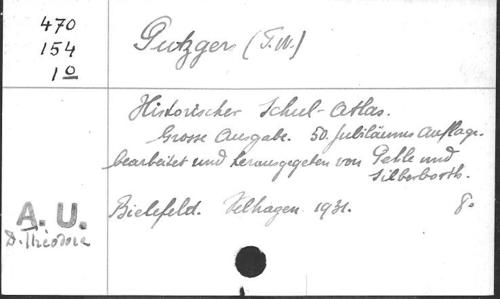 470
154
1º
Putzger (F.W.)
Historischer Schul-Atlas.
Grosse Ausgabe. 50. Jubiläums Auflage.
bearbeitet und herausgegeben von Pehle und
Silberborth.
Bielefeld. Velhagen 1931. 8.
A. U.
D. Théodore